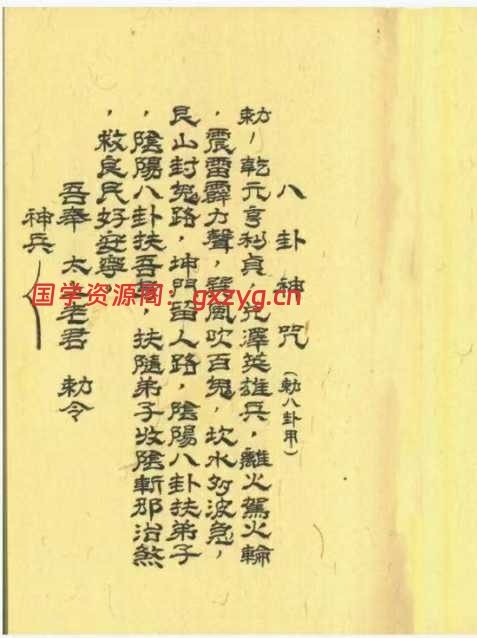 八卦神咒（勅八卦用）
勅，乾元亨利貞，兌澤英雄兵，離火駕火輪
，震雷霹力聲，巽風吹百鬼，坎水多波急，
艮山封鬼路，坤門留人路，陰陽八卦扶弟子
，陰陽八卦扶吾，扶隨弟子收陰斬邪治煞
，救良民好安寧，
吾奉　太上老君　勅令
神兵
国学资源阁：gxzyg.cn